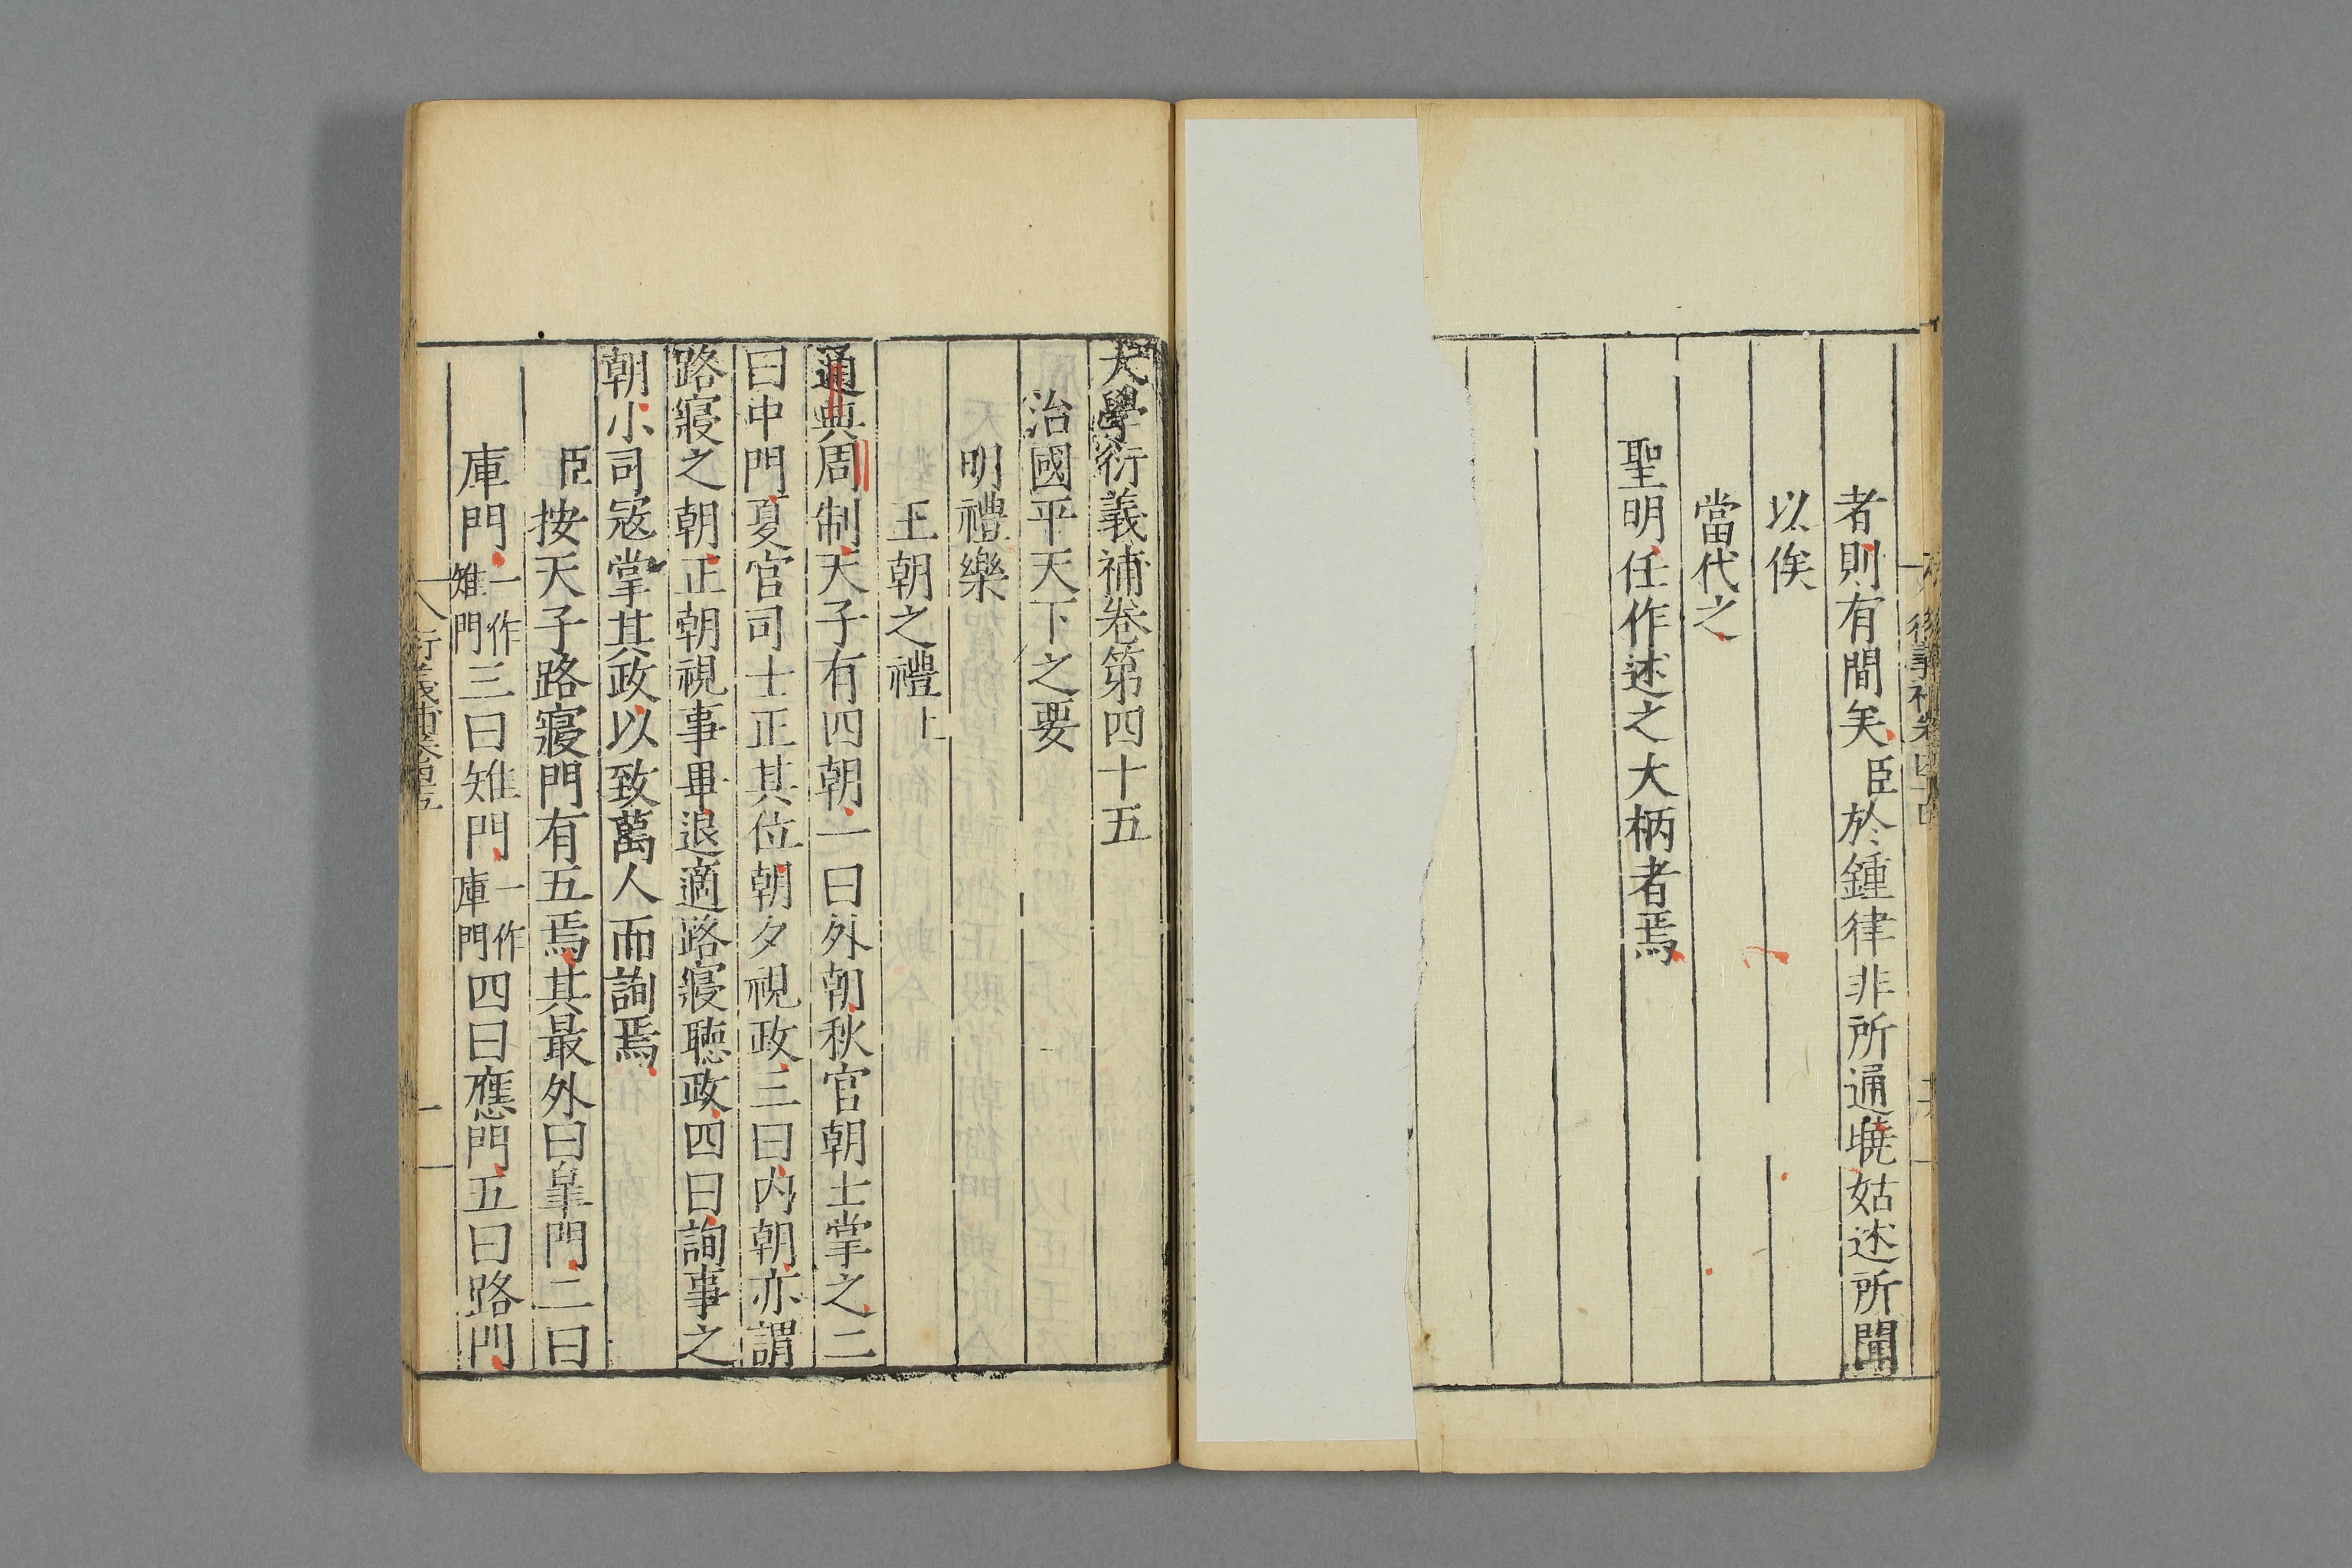 者則有間矣臣於鍾律非所通曉姑述所聞
以俟
當代之
聖明任作述之大柄者焉
大學衍義補卷第四十五
治國平天下之要
明禮樂
王朝之禮上
通典周制天子有四朝一曰外朝秋官朝士掌之二
曰中門夏官司士正其位朝夕視政三曰内朝亦謂
路寢之朝正朝視事畢退適路寢聽政四曰詢事之
朝小司寇掌其政以致萬人而詢焉
臣按天子路寢門有五焉其最外曰臯門二曰
庫門一作雉門三曰雉門一作庫門四曰應門五曰路門